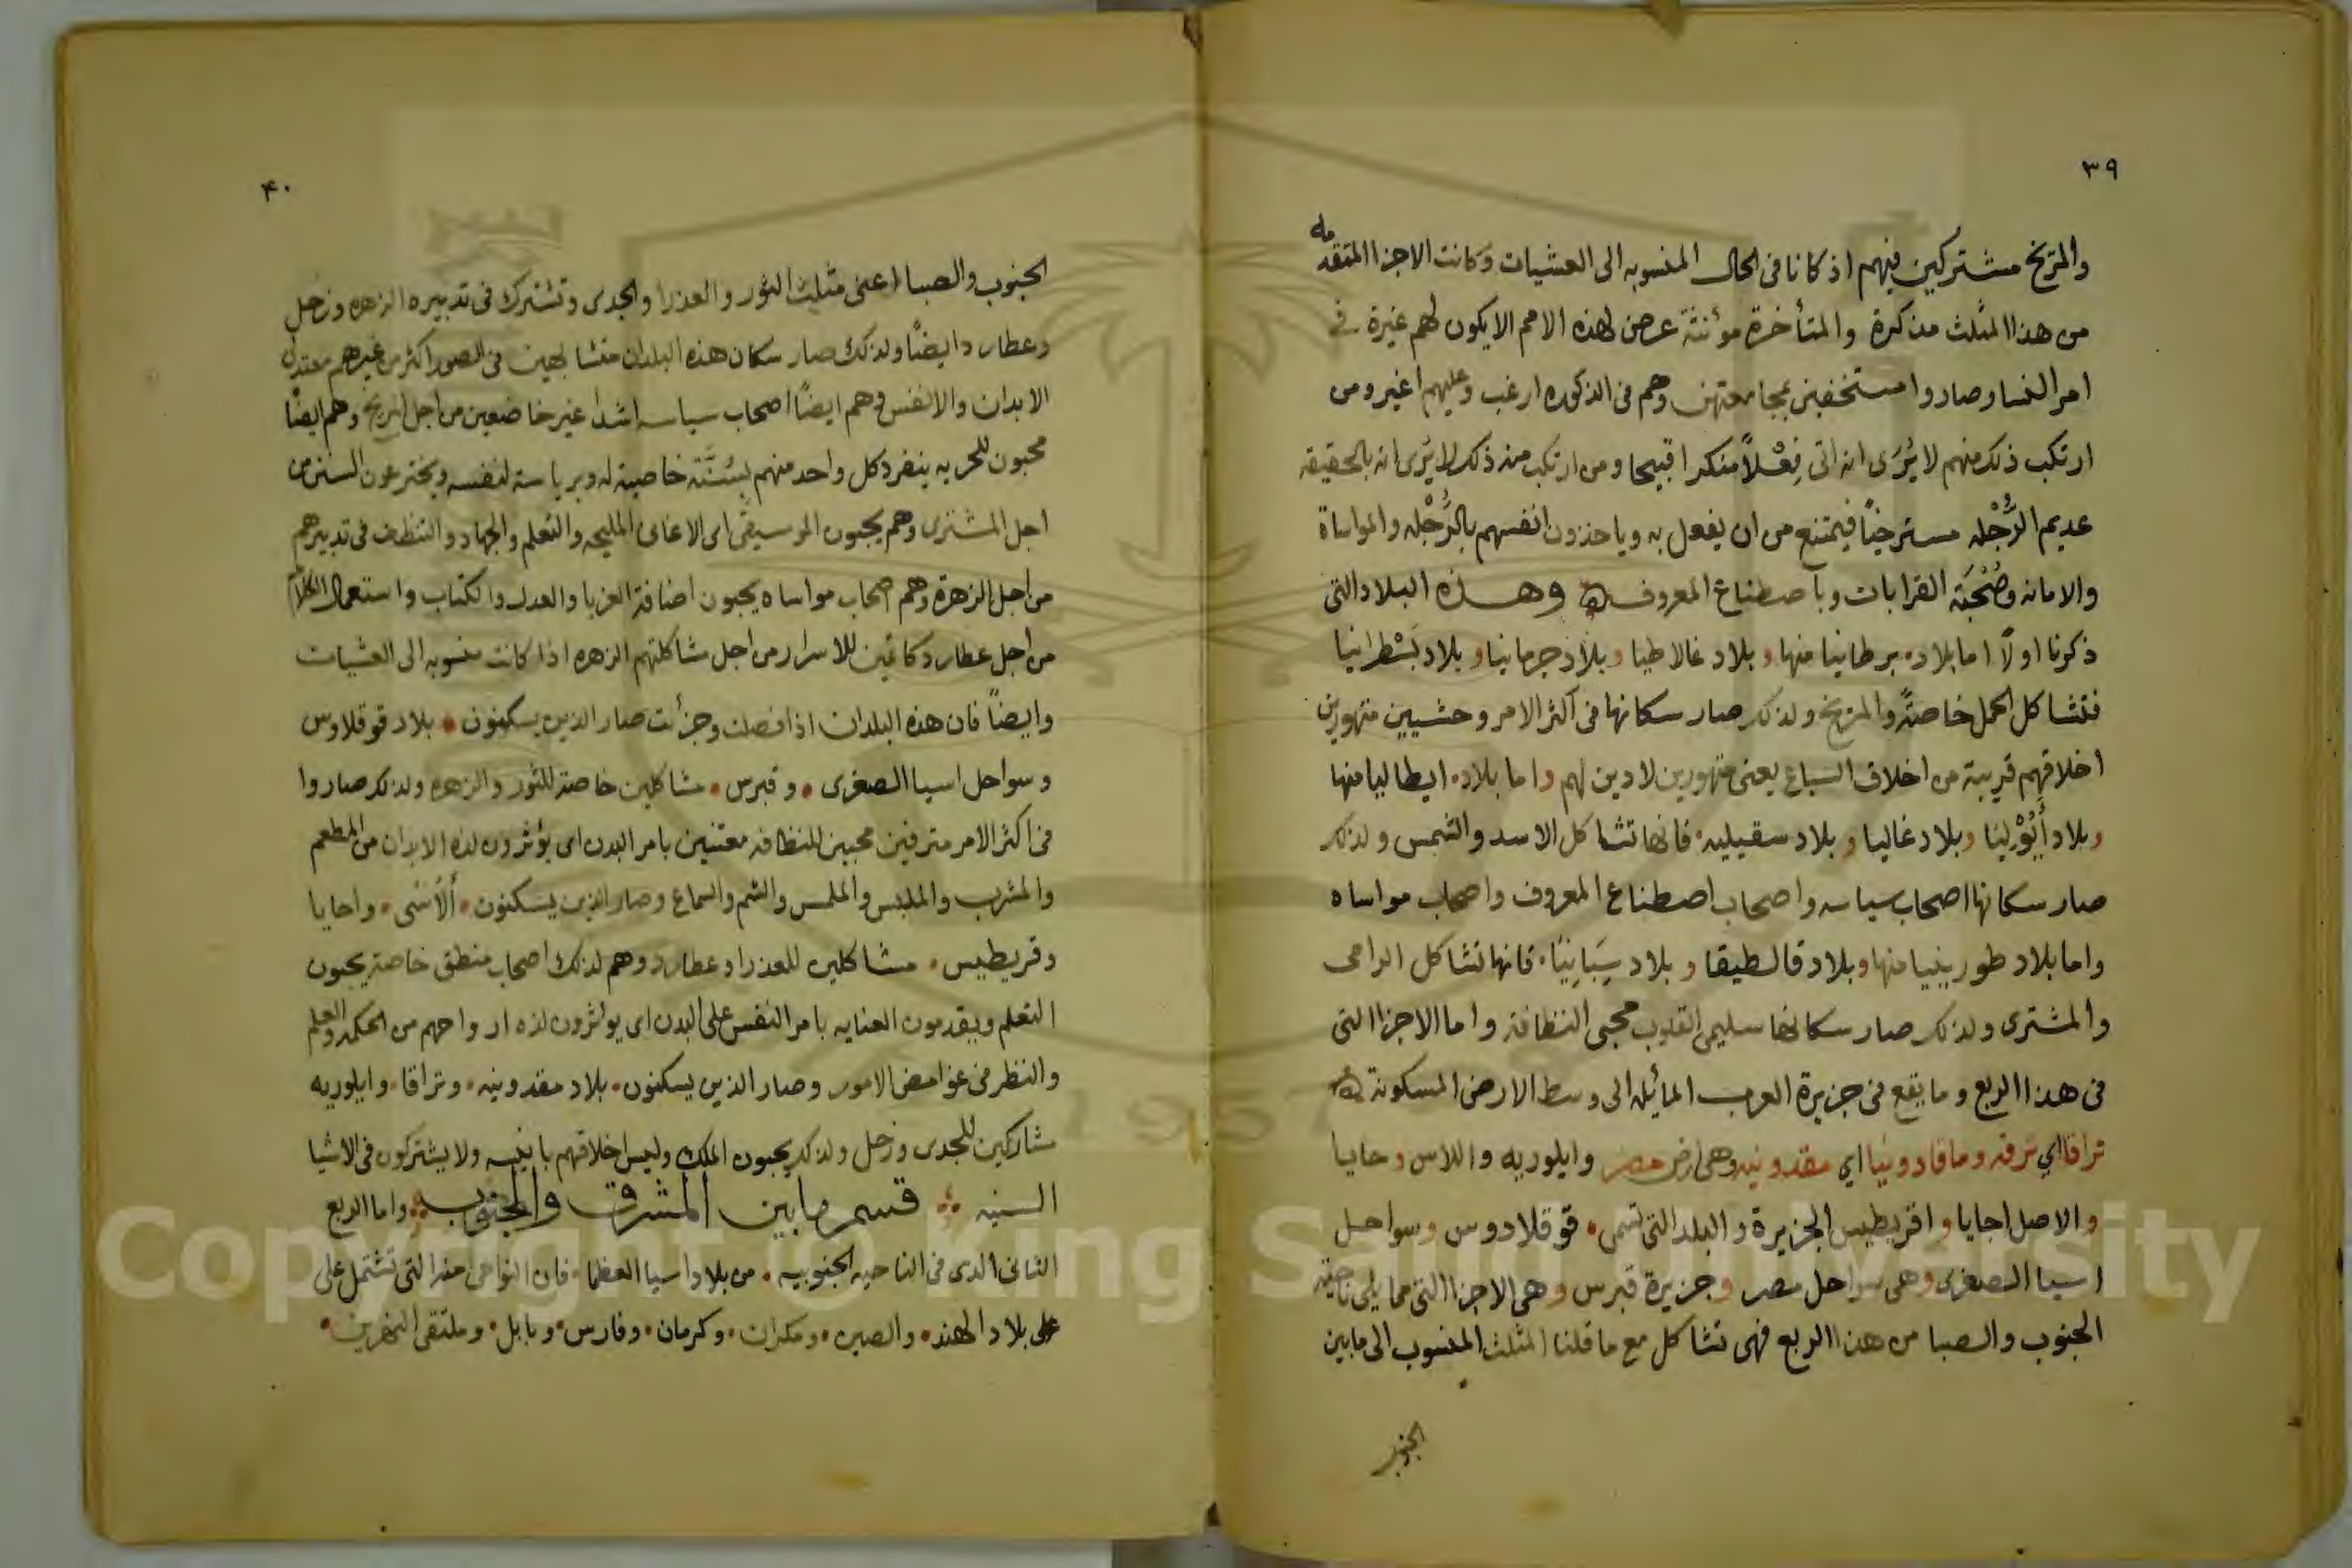 ٣٩
والمريخ مشتركين فيهم اذ كانا فى الحال المنسوبه الى العشيات وكانت الاجزا المتقدمه
من هذا المثلث مذكرة والمتأخرة مؤنثة عرض لهذه الامم الا يكون لهم غيرة فى
امر النسا وصاروا مستخفين بمجامعتهن وهم فى الذكوره ارغب وعليهم اغير ومن
ارتكب ذلك منهم لا يُرَى انه اتى فِعْلاً منكرا قبيحا ومن ارتكب منه ذلك لا يُرى انه بالحقيقه
عديم الرُّجْله مسترخيًا فيمتنع من ان يفعل به وياخذون انفسهم بالرُّجْله والمواساة
والامانه وصُحْبَة القرابات وباصطناع المعروف وهذه البلاد التى
ذكرنا اولًا اما بلاد برطانيا منها وبلاد غالاطيا وبلاد جرمانيا وبلاد بَسْطرانيا
فتشاكل الحمل خاصةً والمريخ ولذلك صار سكانها فى اكثر الامر وحشيين متهورين
اخلاقهم قريبة من اخلاق السباع يعنى متهورين لا دين لهم واما بلاد ايطاليا منها
وبلاد أَبُوْلِيَا وبلاد غاليا وبلاد سقيليه فانها تشاكل الاسد والشمس ولذلك
صار سكانها اصحاب سياسه واصحاب اصطناع المعروف واصحاب مواساه
واما بلاد طورينيا منها وبلاد قالطيقا وبلاد سِبَانِيَا فانها تشاكل الرامى
والمشترى ولذلك صار سكانها سليمى القلوب محبى النظافة واما الاجزا التى
فى هذا الربع وما يقع فى جزيرة العرب المائله الى وسط الارض المسكونة
تراقا اي ترقه وماقادونيا اي مقدونيه وهى ارض مصر وايلوريه واللاس وحايا
والاصل اجايا واقريطيس الجزيرة والبلد التى تسمى قوقلادوس وسواحل
اسيا الصغرى وهى سواحل مصر وجزيرة قبرس وهى الاجزا التى مما يلى ناحية
الجنوب والصبا من هذا الربع فهى تشاكل مع ما قلنا المثلث المنسوب الى ما بين
الجنوب
٤٠
الجنوب والصبا اعنى مثلث الثور والعذرا والجدى وتشترك فى تدبيره الزهره وزحل
وعطارد ايضًا ولذلك صار سكان هذه البلدان متشابهين فى الصور اكثر من غيرهم معتدلى
الابدان والانفس وهم ايضًا اصحاب سياسه اشدا غير خاضعين من اجل المريخ وهم ايضًا
محبون للحريه ينفرد كل واحد منهم بِسُنَّة خاصية له وبرياسة لنفسه ويخترعون السنن من
اجل المشترى وهم يحبون الموسيقى اى الاغانى المليحه والتعلم والجهاد والتنظف فى تدبيرهم
من اجل الزهرة وهم اصحاب مواساه يحبون اضافة الغربا والعدل والكتاب واستعمال الكلام
من اجل عطارد كاتمين للاسرار من اجل مشاكلتهم الزهره اذا كانت منسوبه الى العشيات
وايضاً فان هذه البلدان اذا فصلت وجزأت صار الذين يسكنون بلاد قوقلاوس
وسواحل اسيا الصغرى وقبرس مشاكلين خاصة للثور والزهره ولذلك صاروا
فى اكثر الامر مترفين محبين للنظافه معتنين بامر البدن اى يؤثرون لذه الابدان من المطعم
والمشرب والملبس والملمس والشم والسماع وصار الذين يسكنون أَلَاسى واحايا
وقريطيس مشاكلين للعذرا وعطارد وهم لذلك اصحاب منطق خاصة يحبون
التعلم ويقدمون العنايه بامر النفس على البدن اى يوثرون لذه ارواحهم من الحكمه والعلم
والنظر فى غوامض الامور وصار الذين يسكنون بلاد مقدونيه وتراقا وايلوريه
مشاركين للجدى وزحل ولذلك يحبون الملك وليس اخلاقهم بانيسه ولا يشتركون فى الاشيا
السنيه قسم ما بين المشرق والجنوب واما الربع
الثانى الذى فى الناحيه الجنوبيه من بلاد اسيا العظما فان النواحى منه التى تشتمل على
على بلاد الهند والصين ومكران وكرمان وفارس وبابل وملتقى النهرين
Copyright © King Saud University
1957